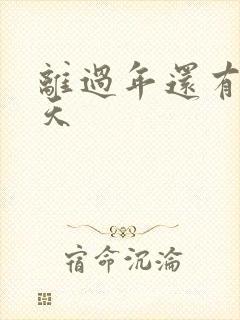 離過年還有
天
宿命沉淪